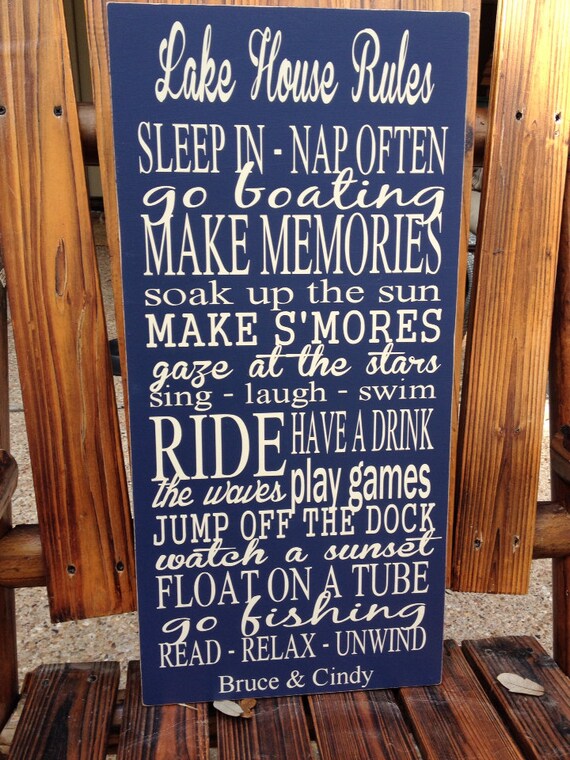 Lake House Rules
SLEEP IN - NAP OFTEN
go boating
MAKE MEMORIES
soak up the sun
MAKE S'MORES
gaze at the stars
sing - laugh - swim
RIDE HAVE A DRINK
the waves play games
JUMP OFF THE DOCK
watch a sunset
FLOAT ON A TUBE
go fishing
READ - RELAX - UNWIND
Bruce & Cindy